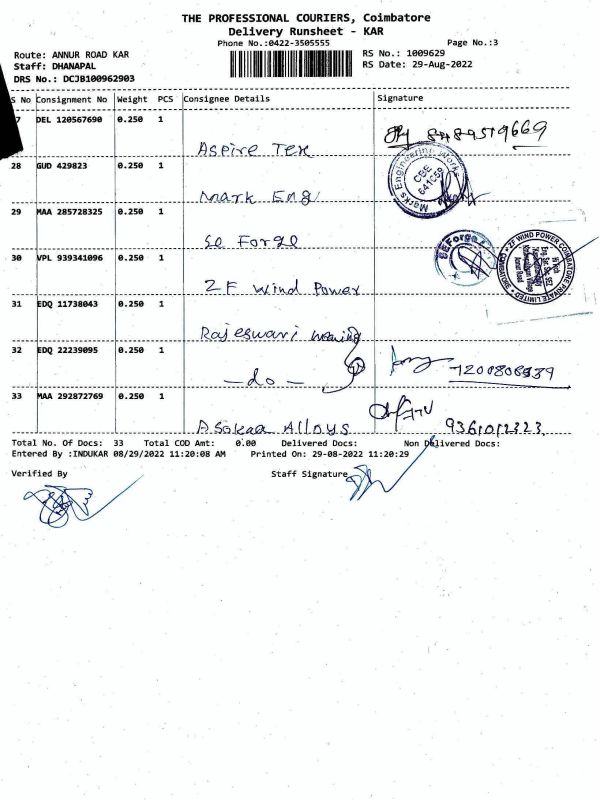 THE PROFESSIONAL COURIERS, Coimbatore
Delivery Runsheet - KAR
Phone No.:0422-3505555 Page No.:3
Route: ANNUR ROAD KAR RS No.: 1009629
Staff: DHANAPAL RS Date: 29-Aug-2022
DRS No.: DCJB100962903
S No Consignment No Weight PCS Consignee Details Signature
7 DEL 120567690 0.250 1
Aspire Tex
28 GUD 429823 0.250 1
Mark Eng
Marks Engineering Works
CBE
29 MAA 285728325 0.250 1
Se Forge
SEForge
30 VPL 939341096 0.250 1
ZF Wind Power
ZF WIND POWER COIMBATORE PRIVATE LIMITED
31 EDQ 11738043 0.250 1
Rajeswari
32 EDQ 22239095 0.250 1
- do -
33 MAA 292872769 0.250 1
Asokaa Alloys
Total No. Of Docs: 33 Total COD Amt: 0.00 Delivered Docs: Non Delivered Docs:
Entered By :INDUKAR 08/29/2022 11:20:08 AM Printed On: 29-08-2022 11:20:29
Verified By Staff Signature